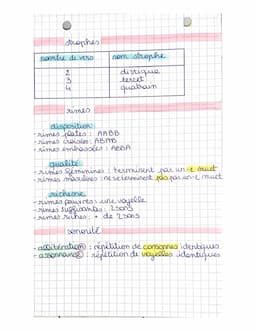 strophes
nombre de vers nom strophe
2 distique
3 tercet
4 quatrain
rimes
disposition:
- rimes plates : AABB
- rimes croisées : ABAB
- rimes embrassées : ABBA
qualité:
- rimes féminines : terminent par un -e muet
- rimes masculines : ne se terminent pas par un -e muet
richesse
- rimes pauvres : une voyelle
- rimes suffisantes : 2 sons
- rimes riches : + de 2 sons
sonorité
- allitération : répétition de consonnes identiques
- assonance : répétition de voyelles identiques